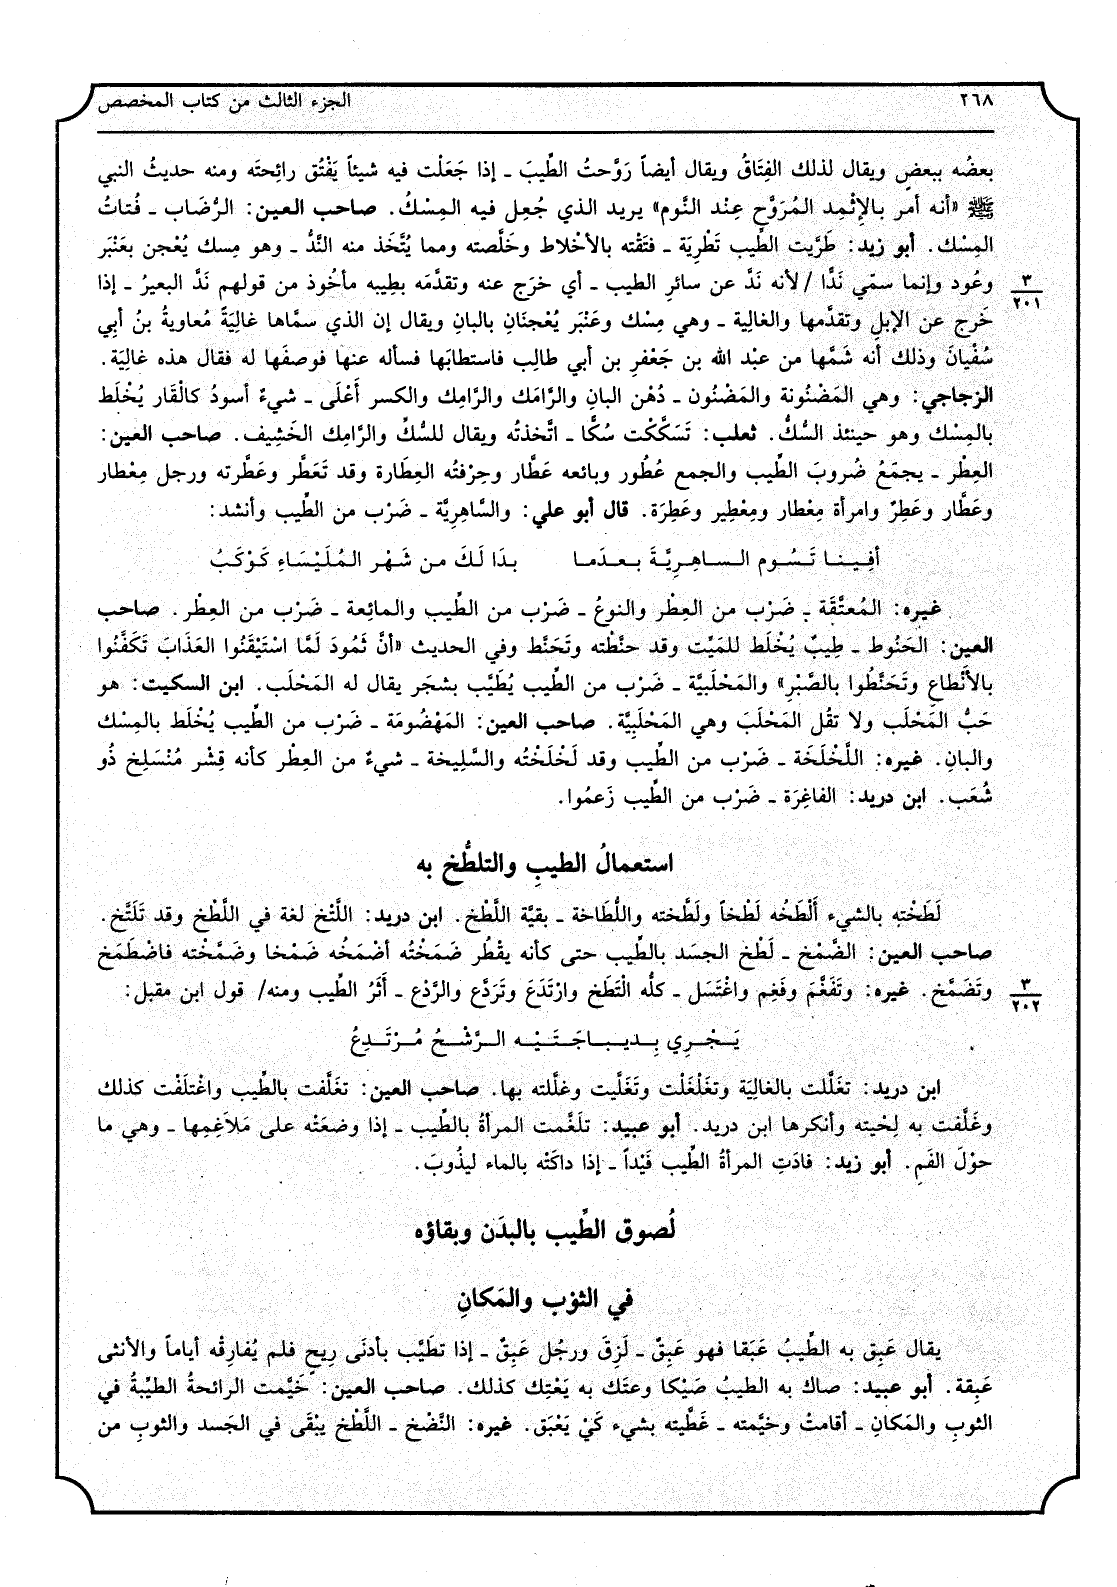 ٢٦٨ الجزء الثالث من كتاب المخصص
بعضُه ببعضٍ ويقال لذلك الفِتَاقُ ويقال أيضاً رَوَّحتُ الطِّيبَ ـ إذا جَعَلْت فيه شيئاً يَفْتُق رائِحتَه ومنه حديثُ النبي
ﷺ «أنه أمر بالإِثْمِد المُرَوَّحِ عِنْد النَّوم» يريد الذي جُعِل فيه المِسْكُ. صاحب العين: الرُّضَاب ـ فُتاتُ
المِسْك. أبو زيد: طَرَّيت الطِّيب تَطْرِيَة ـ فتَقْته بالأخْلاط وخَلَّصته ومما يُتَّخَذ منه النَّدُّ ـ وهو مِسك يُعْجن بعَنْبَر
وعُود وإنما سمّي نَدًّا /لأنه نَدَّ عن سائرِ الطيب ـ أي خرَج عنه وتقدَّمَه بطِيبه مأخُوذ من قولهم نَدَّ البعيرُ ـ إذا
٣
٢٠١
خَرج عن الإبلِ وتقدَّمها والغالِية ـ وهي مِسْك وعَنْبَر يُعْجنَانِ بالبانِ ويقال إن الذي سمَّاها غالِيَةً مُعاويةُ بنُ أبي
سُفْيانَ وذلك أنه شَمَّها من عبْد الله بن جَعْفرِ بن أبي طالِب فاستطابَها فسأله عنها فوصفَها له فقال هذه غالِيَة.
الزجاجي: وهي المَضْنُونة والمَضْنُون ـ دُهْن البانِ والرَّامَك والرَّامِك والكسر أَعْلَى ـ شيءٌ أسودُ كالْقَار يُخْلَط
بالمِسْك وهو حينئذ السُّكُّ. ثعلب: تَسَكَّكْت سُكًّا ـ اتَّخذتُه ويقال للسُّكِّ والرَّامِك الخَشِيف. صاحب العين:
العِطْر ـ يجمَعُ ضُروبَ الطِّيب والجمع عُطُور وبائعه عَطَّار وحِرْفتُه العِطَارة وقد تَعَطَّر وعَطَّرته ورجل مِعْطار
وعَطَّار وعَطِرٌ وامرأة مِعْطار ومِعْطِير وعَطِرَة. قال أبو علي: والسَّاهِرِيَّة ـ ضَرْب من الطِّيب وأنشد:
أفِينا تَسُوم الساهِرِيَّةَ بعدَما بدَا لَكَ من شَهْر المُلَيْسَاءِ كَوْكَبُ
غيره: المُعتَّقَة ـ ضَرْب من العِطْر والنوعُ ـ ضَرْب من الطِّيب والمائِعة ـ ضَرْب من العِطْر. صاحب
العين: الحَنُوط ـ طِيبٌ يُخْلَط للمَيِّت وقد حنَّطْته وتَحَنَّط وفي الحديث «أنَّ ثَمُودَ لَمَّا اسْتَيْقَنُوا العَذَابَ تَكَفَّنُوا
بالأَنْطاعِ وتَحَنَّطُوا بالصَّبْرِ» والمَحْلَبيَّة ـ ضَرْب من الطِّيب يُطَيَّب بشجَر يقال له المَحْلَب. ابن السكيت: هو
حَبُّ المَحْلَب ولا تقُل المَحْلَبَ وهي المَحْلَبِيَّة. صاحب العين: المَهْضُومَة ـ ضَرْب من الطِّيب يُخْلَط بالمِسْك
والبانِ. غيره: اللَّخْلَخَة ـ ضَرْب من الطِّيب وقد لَخْلَخْتُه والسَّلِيخة ـ شيءٌ من العِطْر كأنه قِشْر مُنْسَلِخ ذُو
شُعَب. ابن دريد: الفاغِرَة ـ ضَرْب من الطِّيب زَعمُوا.
استعمالُ الطيبِ والتلطُّخ به
لَطَخْتِه بالشيء أَلْطَخُه لَطْخاً ولَطَّخته واللُّطَاخة ـ بقيَّة اللَّطْخ. ابن دريد: اللَّتْخ لغة في اللَّطْخ وقد تَلَتَّخ.
صاحب العين: الضَّمْخ ـ لَطْخ الجسَد بالطِّيب حتى كأنه يقْطُر ضَمَخْتُه أضْمَخُه ضَمْخا وضَمَّخْته فاضْطَمَخ
وتَضَمَّخ. غيره: وتَفَغَّمَ وفَغِم واغْتَسَل ـ كلُّه الْتَطَخ وارْتَدَعَ وتَرَدَّع والرَّدْع ـ أَثَرُ الطِّيب ومنه/ قول ابن مقبل:
٣
٢٠٢
يَـجْـرِي بِـديـبـاجَـتَـيْـه الـرَّشْـحُ مُـرْتَـدِعُ
ابن دريد: تغَلَّلت بالغالِيَة وتغَلْغَلْت وتَغَلَّيت وغلَّلته بها. صاحب العين: تغَلَّفت بالطِّيب واغْتلَفْت كذلك
وغَلَّفت به لِحْيته وأنكرها ابن دريد. أبو عبيد: تلَغَّمت المرأةُ بالطِّيب ـ إذا وضعَتْه على مَلاَغِمِها ـ وهي ما
حوْلَ الفَمِ. أبو زيد: فادَتِ المرأةُ الطِّيب فَيْداً ـ إذا داكَتْه بالماء ليذُوبَ.
لُصوق الطِّيب بالبدَن وبقاؤه
في الثوْب والمَكانِ
يقال عَبِق به الطِّيبُ عَبَقا فهو عَبِقٌ ـ لَزِقَ ورجُل عَبِقٌ ـ إذا تطَيَّب بأدنَى رِيحٍ فلم يُفارِقْه أياماً والأنثى
عَبِقة. أبو عبيد: صاك به الطيبُ صَيْكا وعتَك به يَعْتِك كذلك. صاحب العين: خَيَّمت الرائحةُ الطيِّبةُ في
الثوبِ والمَكانِ ـ أقامتْ وخيَّمته ـ غَطَّيته بشيء كَيْ يَعْبَق. غيره: النَّضْخ ـ اللَّطْخ يبْقَى في الجَسد والثوبِ من